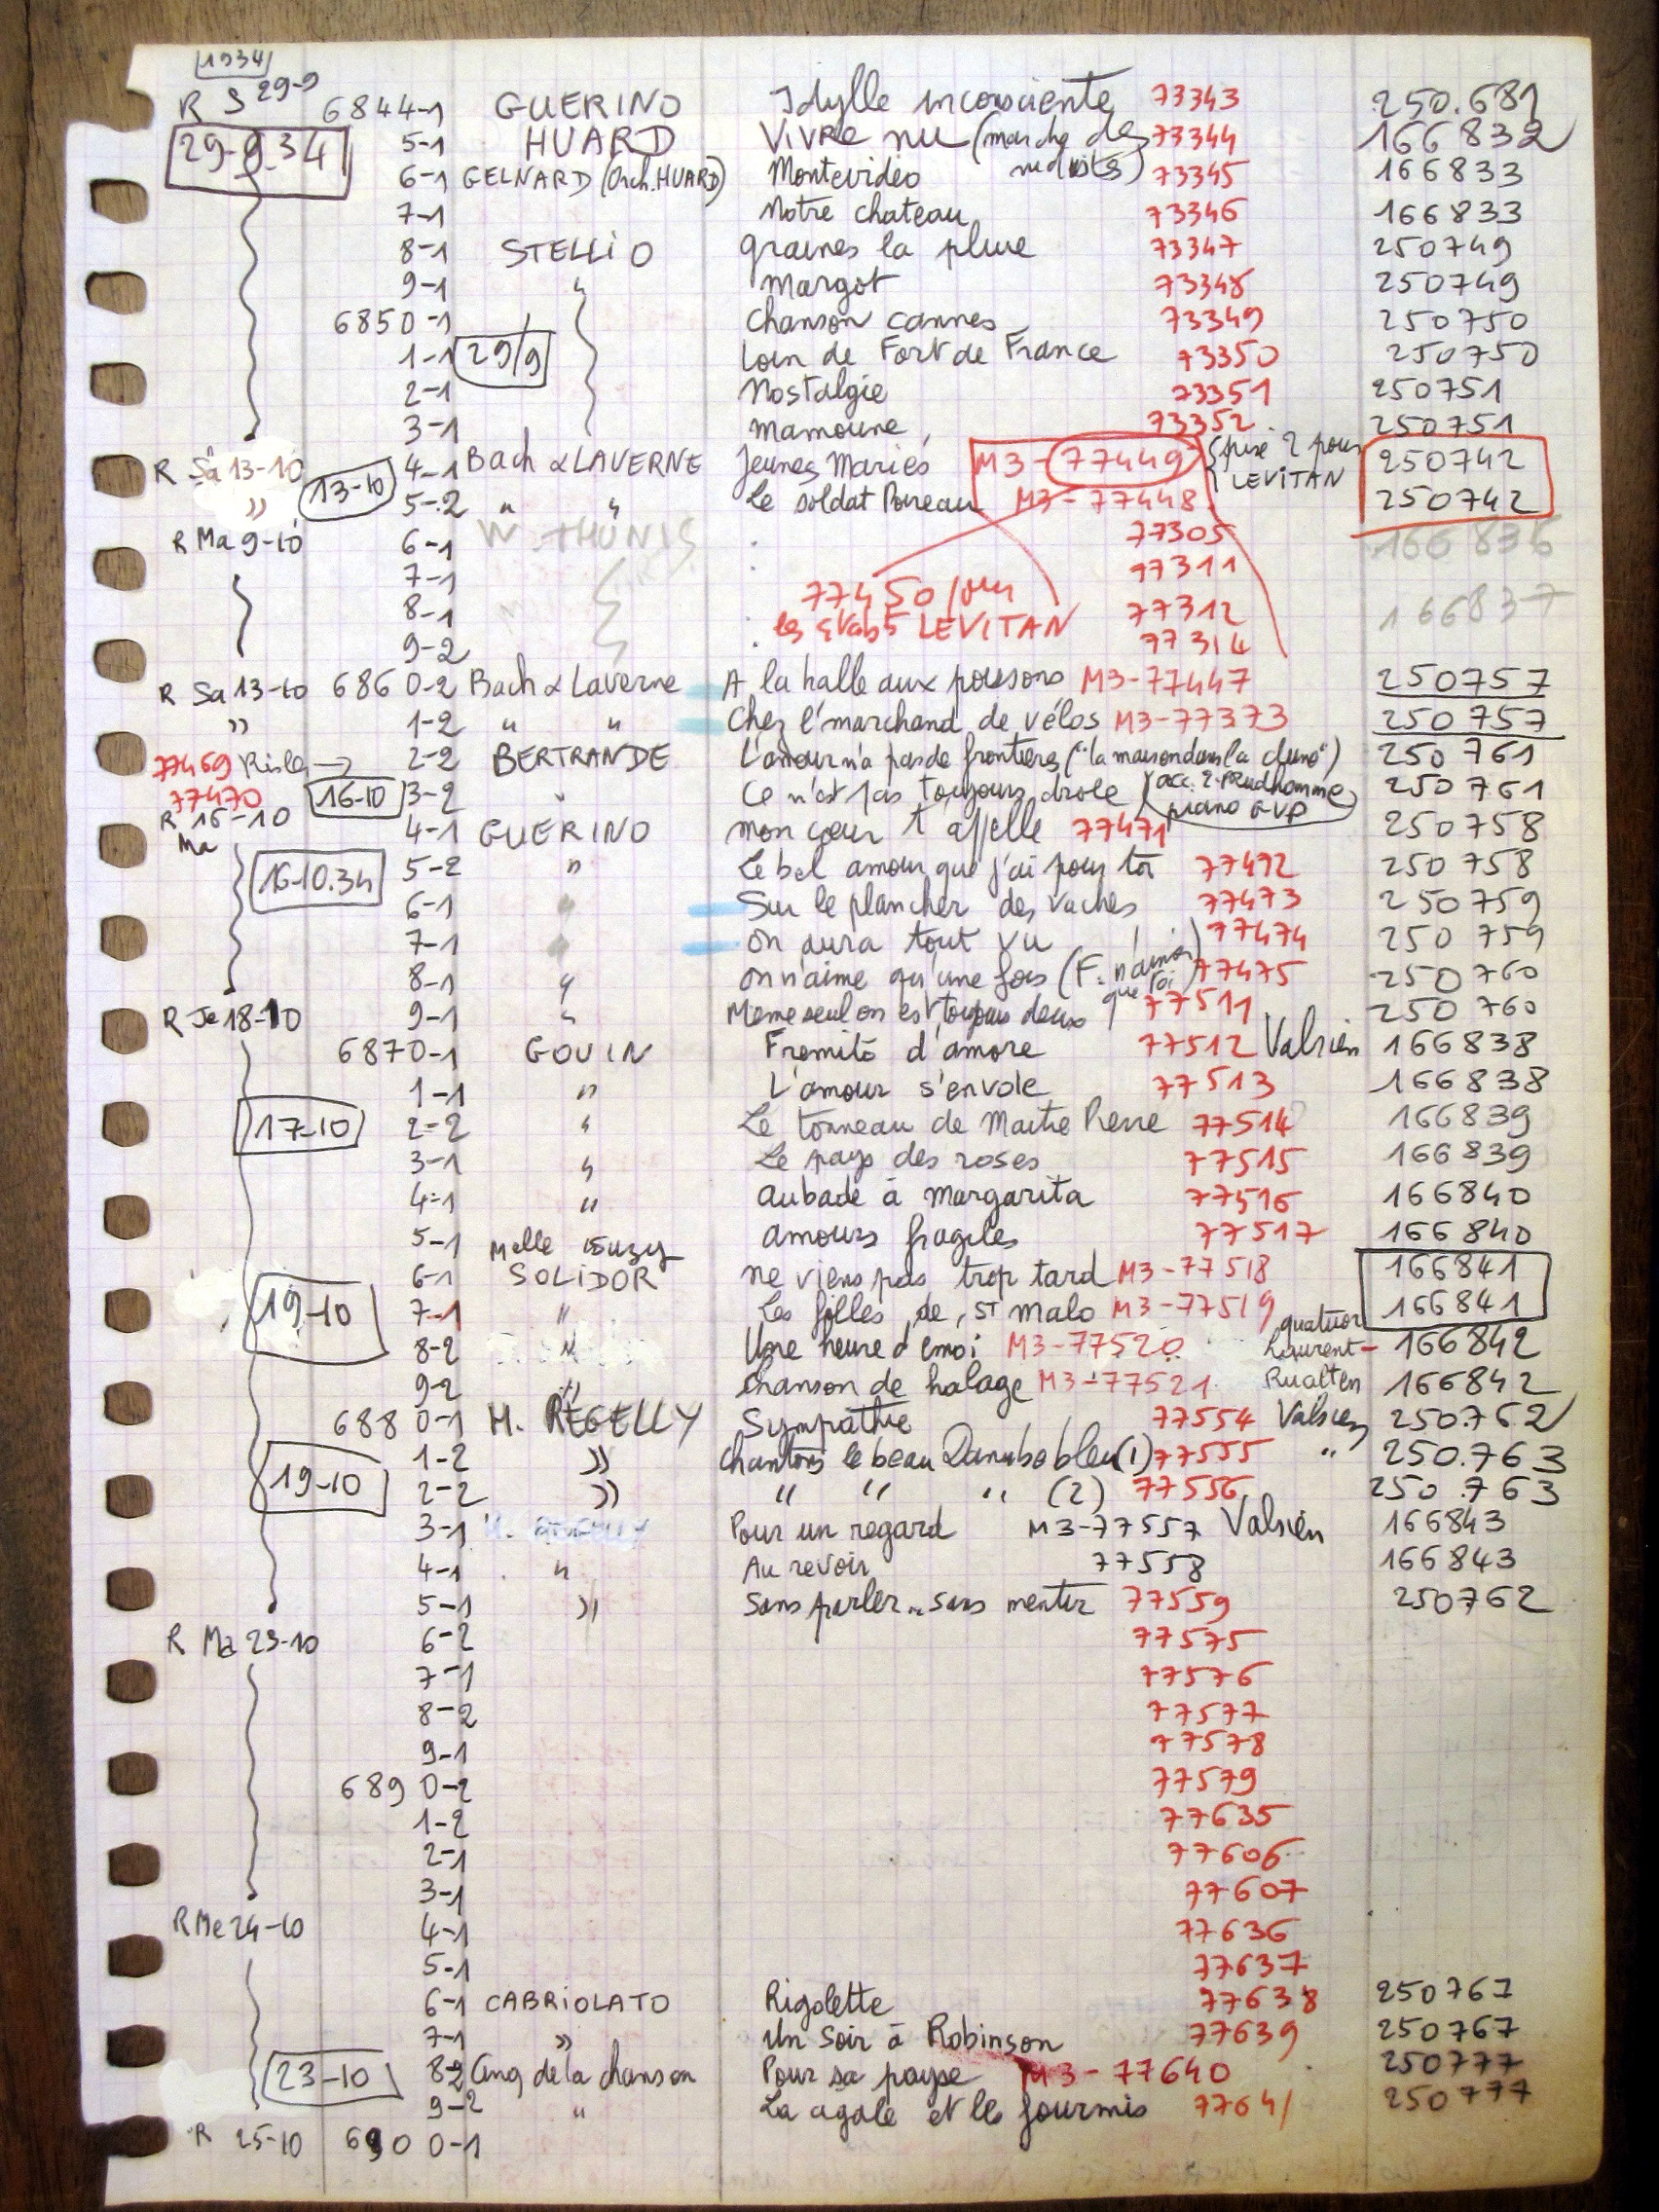 1934
R S 29-9 6844-1 GUERINO Idylle inconsciente 73343 250.681
29-9.34 5-1 HUARD VIVRE nu (marche des nudistes) 73344 166832
6-1 GELNARD (Orch. HUARD) Montevideo 73345 166833
7-1 Notre chateau 73346 166833
8-1 STELLIO graines la pluie 73347 250749
9-1 " Margot 73348 250749
6850-1 Chanson cannes 73349 250750
1-1 29/9 Loin de Fort de France 73350 250750
2-1 Nostalgie 73351 250751
3-1 Mamoune 73352 250751
R Sa 13-10 13-10 4-1 Bach & LAVERNE Jeunes Mariés M3-77449 (prise 2 pour LEVITAN 250742
" 5-2 " " Le soldat Poireau M3-77448 250742
R Ma 9-10 6-1 W. THUNIS 77305 166836
7-1 97311
77450 pour
8-1 77312 166837
les Etabs LEVITAN
9-2 77314
R Sa 13-10 6860-2 Bach & Laverne A la halle aux poissons M3-77447 250757
" 1-2 " " Chez l'marchand de vélos M3-77373 250757
77469 → 2-2 BERTRANDE L'amour n'a pas de frontieres ("la maison dans la dune") 250761
77470 16-10 3-2 " Ce n'est pas toujours drole (acc. 2. PRudhomme piano GVP) 250761
R 16-10 Ma 4-1 GUERINO mon cœur t'appelle 77471 250758
16-10.34 5-2 " Le bel amour que j'ai pour toi 77472 250758
6-1 " Sur le plancher des vaches 77473 250759
7-1 " on aura tout vu 77474 250759
8-1 " on n'aime qu'une fois (F: n'aimer que toi) 77475 250760
R Je 18-10 9-1 " Meme seul on est toujours deux 77511 250760
6870-1 GOUIN Fremito d'amore 77512 Valsien 166838
1-1 " L'amour s'envole 77513 166838
17-10 2-2 " Le tonneau de Maitre Pierre 77514 166839
3-1 " Le pays des roses 77515 166839
4-1 " aubade à Margarita 77516 166840
5-1 amours fragiles 77517 166840
Melle Suzy
6-1 SOLIDOR ne viens pas trop tard M3-77518 166841
19-10 7-1 " Les filles de ST malo M3-77519 166841
8-2 " Une heure d'emoi M3-77520 quatuor Laurent- 166842
9-2 " Chanson de halage M3-77521 Rualten 166842
6880-1 M. REGELLY Sympathie 77554 Valsien 250.762
19-10 1-2 " Chantons le beau Danube bleu (1) 77555 " 250.763
2-2 " " " " (2) 77556 250.763
3-1 Pour un regard M3-77557 Valsien 166843
4-1 " Au revoir 77558 166843
5-1 " Sans parler.. sans mentir 77559 250762
R Ma 23-10 6-2 77575
7-1 77576
8-2 77577
9-1 77578
6890-2 77579
1-2 77635
2-1 77606
3-1 77607
R Me 24-10 4-1 77636
5-1 77637
6-1 CABRIOLATO Rigolette 77638 250767
7-1 " Un Soir à Robinson 77639 250767
23-10 8-2 Cinq de la chanson Pour sa payse M3-77640 250777
9-2 " La cigale et les fourmis 77641 250777
R 25-10 6900-1